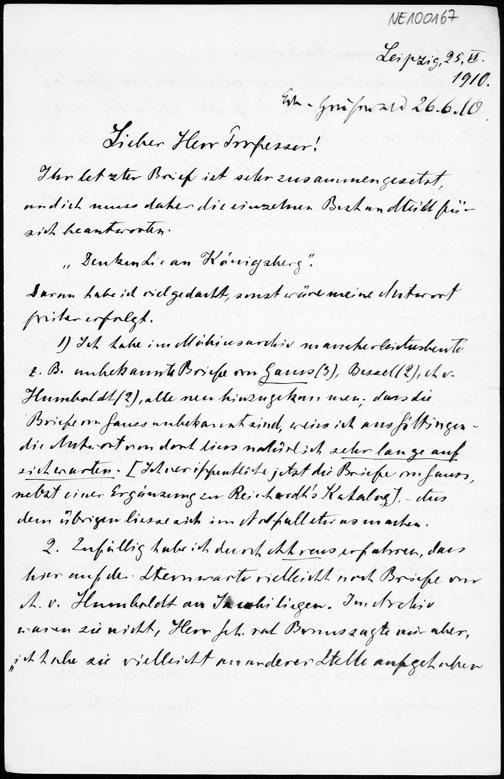 NE100167
Leipzig, 25. VI.
1910.
Grunewald 26.6.10
Lieber Herr Professor!
Ihr letzter Brief ist sehr zusammengesetzt,
und ich muss daher die einzelnen Bestandteile für
sich beantworten.
„Denken Sie an Königsberg".
Daran habe ich viel gedacht, sonst wäre meine Antwort
früher erfolgt.
1) Ich habe im Möbiusarchiv mancherlei
z. B. unbekannte Briefe von Gauss (3), Bessel (2), A. v.
Humboldt (2), alle neu hinzugekommen; dass die
Briefe von Gauss unbekannt sind, weiss ich aus Göttingen -
die Antwort von dort liess natürlich sehr lange auf
sich warten. [Ich veröffentliche jetzt die Briefe von Gauss,
nebst einer Ergänzung zu Reinhardt's Katalog] - aus
dem übrigen liesse sich im Notfall etwas machen.
2. Zufällig habe ich durch Ahrens erfahren, dass
hier auf der Sternwarte vielleicht noch Briefe von
A. v. Humboldt an Jacobi liegen. Im Archiv
waren sie nicht, Herr Geh. rat Bruns sagte mir aber,
„ich habe sie vielleicht an anderer Stelle aufgehoben